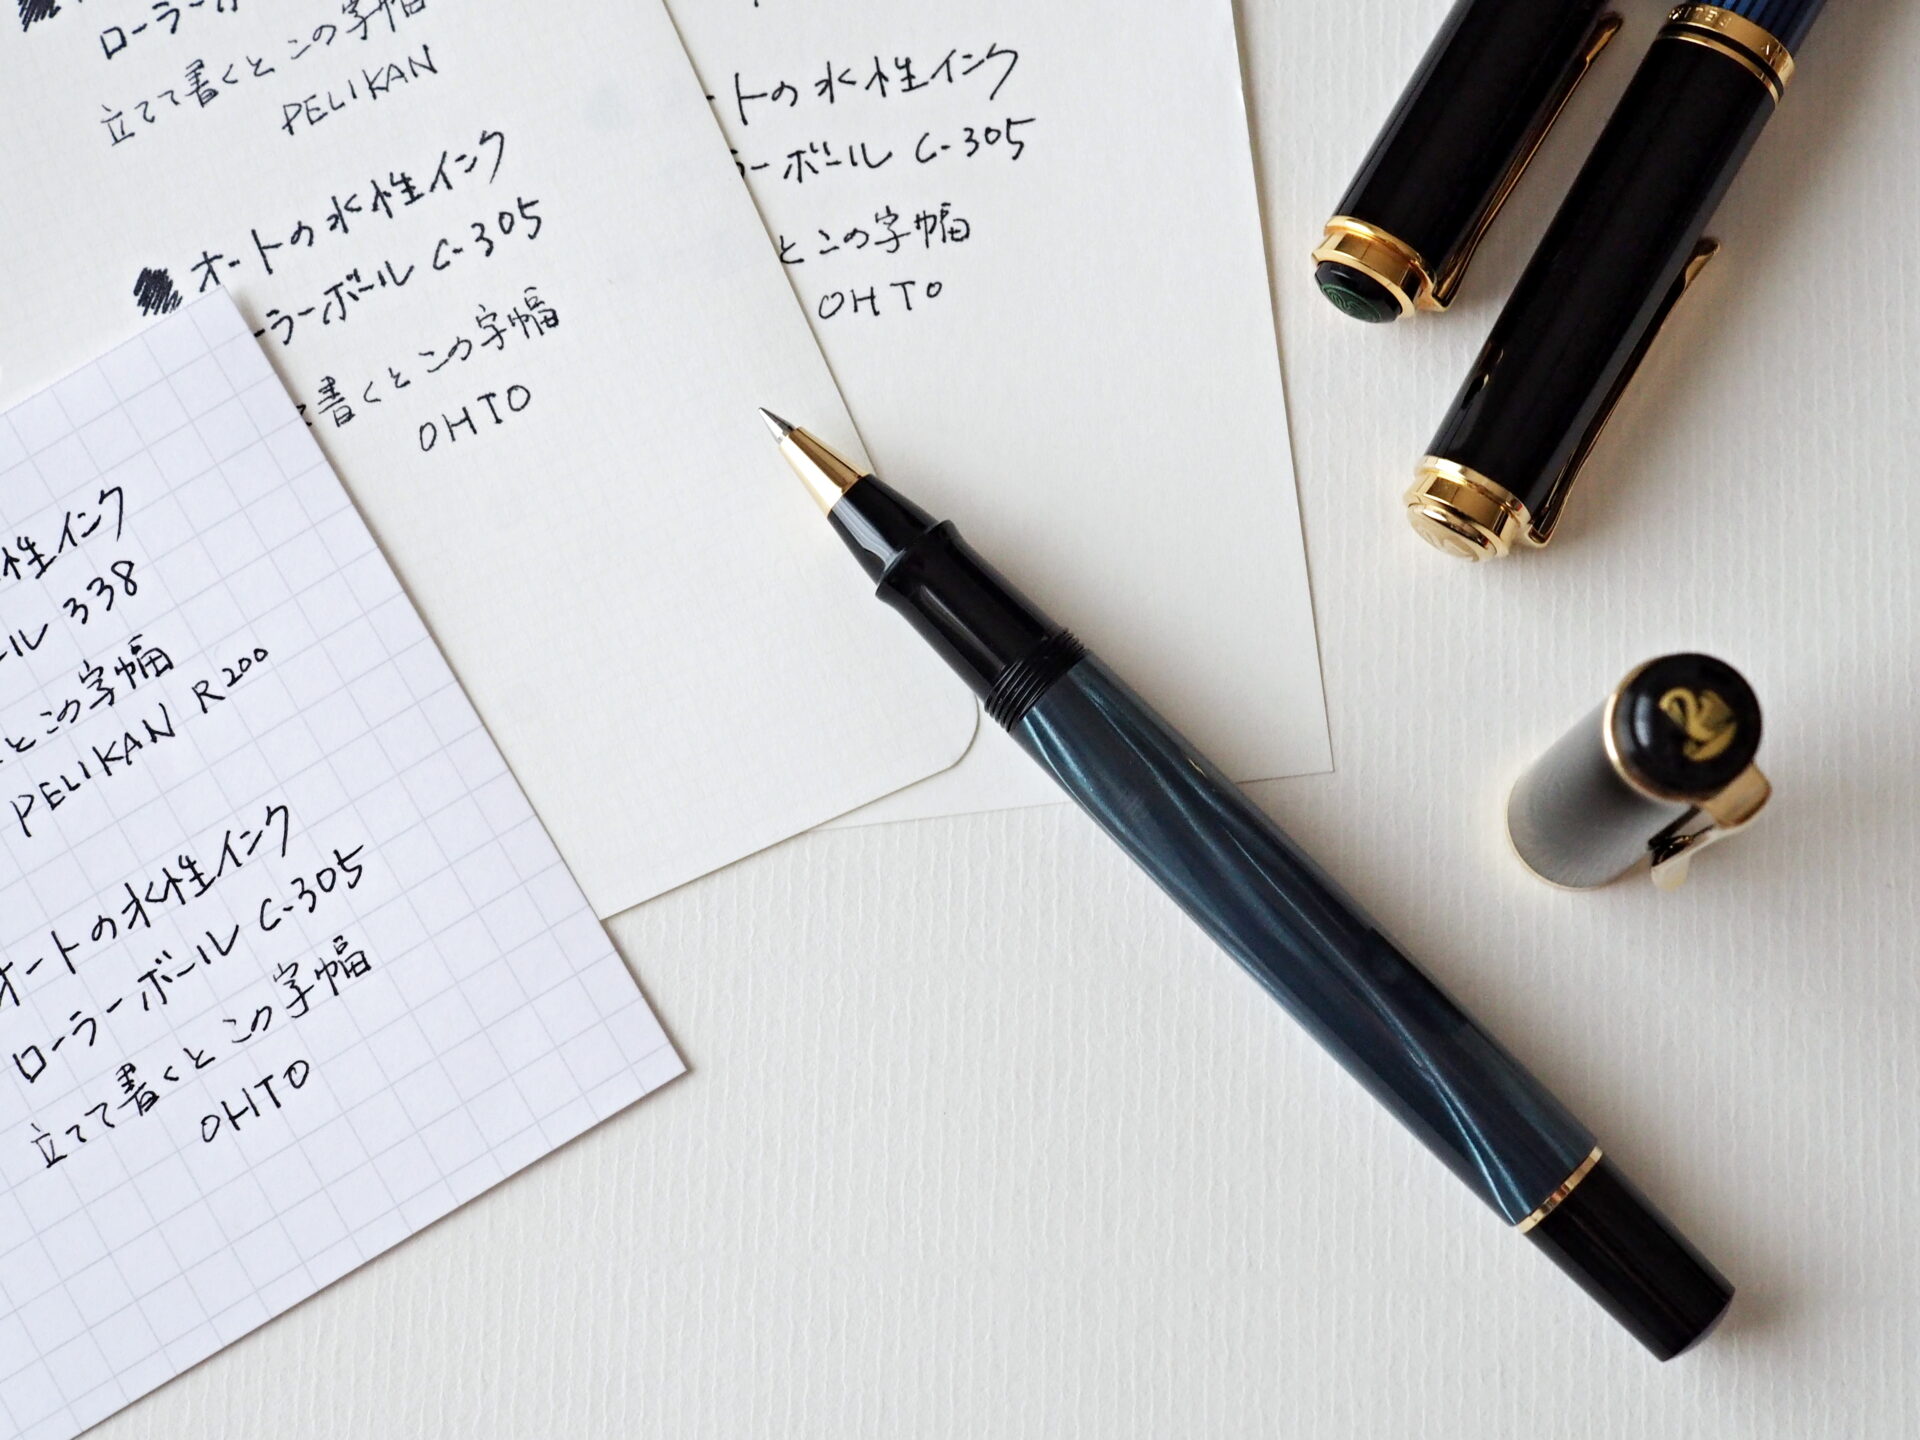 ローラーボ
立てて書くと この字幅
PELIKAN
オートの水性インク
ローラーボール C-305
書くと この字幅
OHTO
トの水性インク
ラーボール C-305
と この字幅
OHTO
性インク
ール 338
と この字幅
PELIKAN R200
オートの水性インク
ローラーボール C-305
立てて書くと この字幅
OHTO